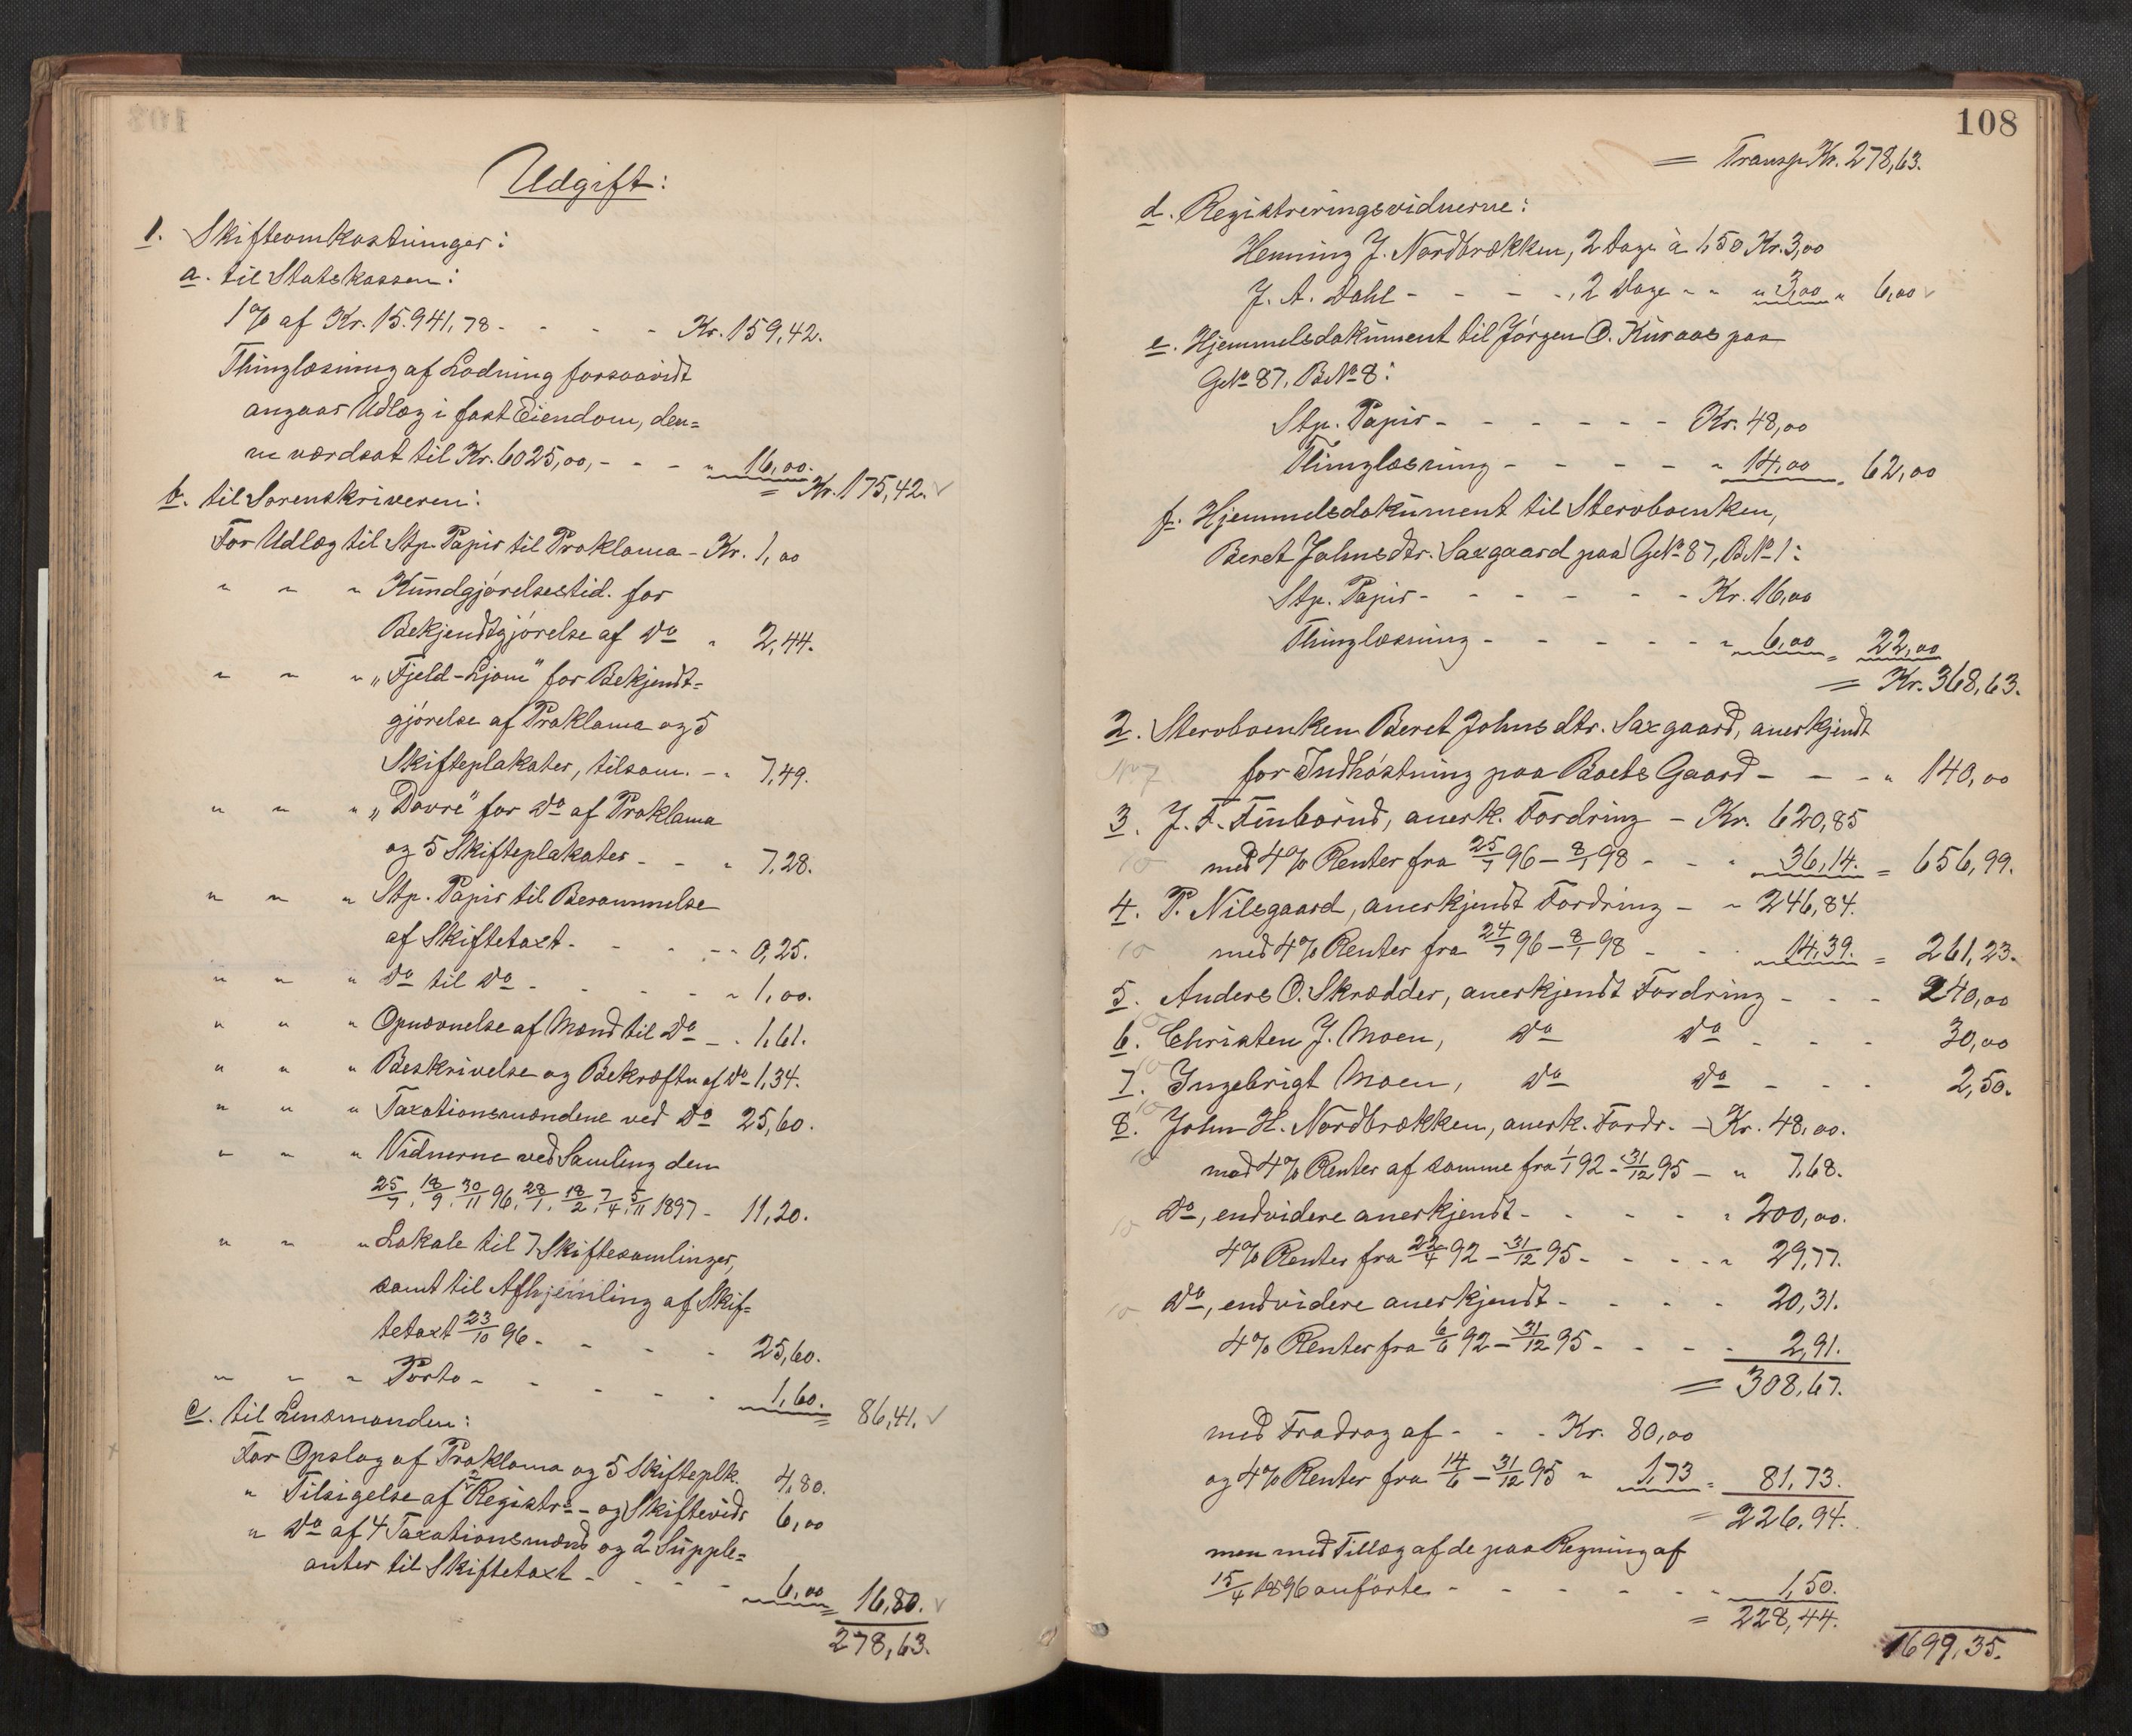 Udgift:
1. Skifteomkostninger:
a. til Statskassen:
1% af Kr. 15.941,78 - - - - Kr. 159,42.
Thinglæsning af Lodning forsaavidt
angaar Udlæg i fast Eiendom, den=
ne værdsat til Kr. 6025,00, - - - " 16,00.
= Kr. 175,42. ✓
b. til Sorenskriveren:
For Udlæg til Stp. Papir til Proklama - Kr. 1,00
" " " Kundgjørelsestid. for
Bekjendtgjørelse af Do " 2,44.
" " " „Fjeld-Ljom" for Bekjendt=
gjørelse af Proklama og 5
Skifteplakater, tilsam. - " 7,49.
" " " „Dovre" for Do af Proklama
og 5 Skifteplakater - - " 7,28.
" " " Stp. Papir til Berammelse
af Skiftetaxt - - - - " 0,25.
" " " Do til Do - - - - " 1,00.
" " " Opnævnelse af Mænd til Do - " 1,61.
" " " Beskrivelse og Bekræftn af Do 1,34.
" " " Taxationsmændene ved Do 25,60.
" " " Vidnerne ved Samling den
25/7, 18/9, 30/11 96, 28/1, 18/2, 7/4, 5/11 1897 - 11,20.
" " " Lokale til 7 Skiftesamlinger,
samt til Afhjemling af Skif=
tetaxt 23/10 96 - - - - 25,60.
" " " Porto - - - - - 1,60. = 86,41. ✓
c. til Lensmanden:
For Opslag af Proklama og 5 Skifteplk. 4,80.
" Tilsigelse af 2 Registr= og Skiftevidr 6,00
" Do af 4 Taxationsmænd og 2 Supple=
anter til Skiftetaxt - - - - 6,00 = 16,80. ✓
278,63.
108
= Transp. Kr. 278,63.
d. Registreringsvidnerne:
Henning J. Nordbrækken, 2 Dage à 1,50 Kr. 3,00
J. A. Dahl - - - -, 2 Dage " " " 3,00 " 6,00 ✓
e. Hjemmelsdokument til Jørgen O. Kuraas paa
GNo 87, BNo 8:
Stp. Papir - - - - - - Kr. 48,00
Thinglæsning - - - - - " 14,00 = 62,00
f. Hjemmelsdokument til Stervboenken,
Beret Johnsdtr. Saxgaard paa GNo 87, BNo 1:
Stp. Papir - - - - - - Kr. 16,00
Thinglæsning - - - - - - " 6,00 = 22,00
= Kr. 368,63.
2. Stervboenken Beret Johnsdtr. Saxgaard, anerkjendt
for Indhøstning paa Boets Gaard - - - " 140,00
3. J. F. Finborud, anerk. Fordring - Kr. 620,85
med 4% Renter fra 25/7 96 - 8/1 98 - - " 36,14. = 656,99.
4. P. Nilsgaard, anerkjendt Fordring - " 246,84.
med 4% Renter fra 24/7 96 - 8/1 98 - - " 14,39. = 261,23.
5. Anders O. Skrædder, anerkjendt Fordring - - - 240,00
6. Christen J. Moen, Do Do - - - 30,00
7. Ingebrigt Moen, Do Do - - - 2,50.
8. John H. Nordbrækken, anerk. Fordr. - Kr. 48,00.
med 4% Renter af samme fra 1/1 92 - 31/12 95 - " 7,68.
Do, endvidere anerkjendt - - - - - " 200,00.
4% Renter fra 22/4 92 - 31/12 95 - - - - " 29,77.
Do, endvidere anerkjendt - - - - - 20,31.
4% Renter fra 6/6 92 - 31/12 95 - - - - 2,91.
= 308,67.
med Fradrag af - - - Kr. 80,00
og 4% Renter fra 14/6 - 31/12 95 " 1,73 = 81,73.
= 226,94.
men med Tillæg af de paa Regning af
15/4 1896 anførte - - - - - - - 1,50.
= 228,44.
1699,35.